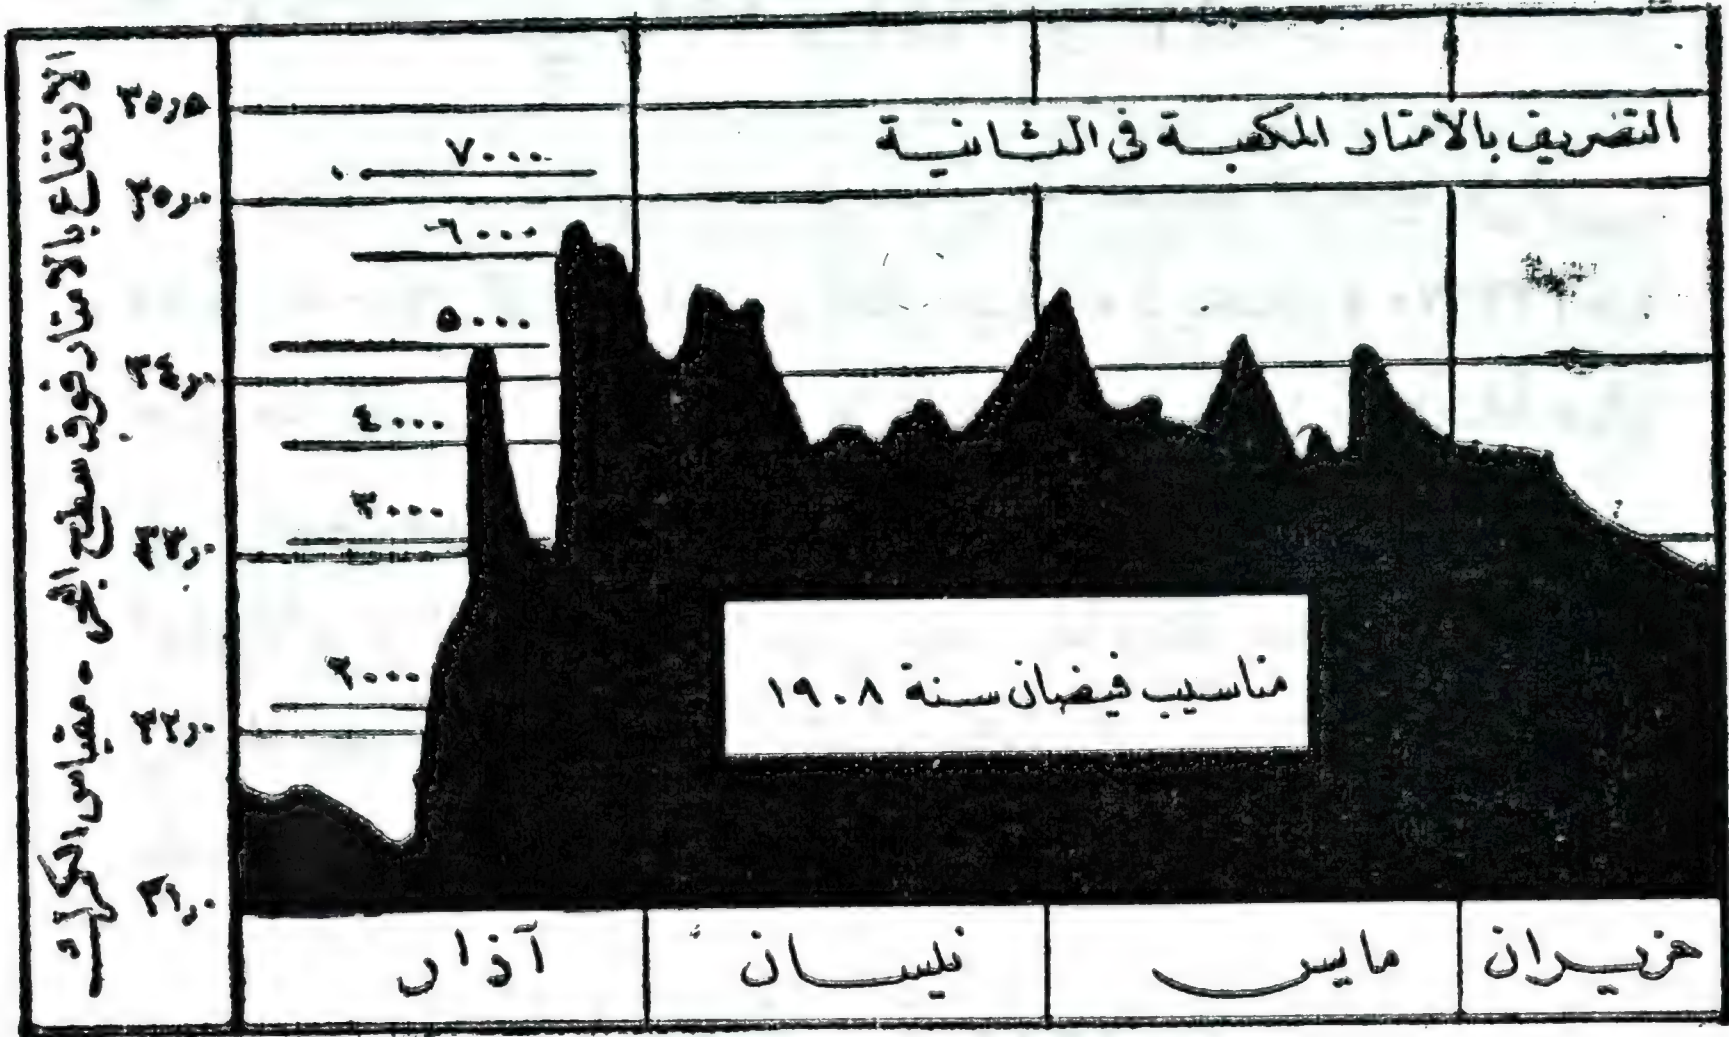 الارتفاع بالامتار فوق سطح البحر - مقياس الكرك
٣٥٫٥
٣٥٫٠
٣٤٫٠
٣٣٫٠
٣٢٫٠
٣١٫٠
التصريف بالامتار المكعبة في الثانية
٧٠٠٠
٦٠٠٠
٥٠٠٠
٤٠٠٠
٣٠٠٠
٢٠٠٠
مناسيب فيضان سنة ١٩٠٨
آذار
نيسان
مايس
حزيران